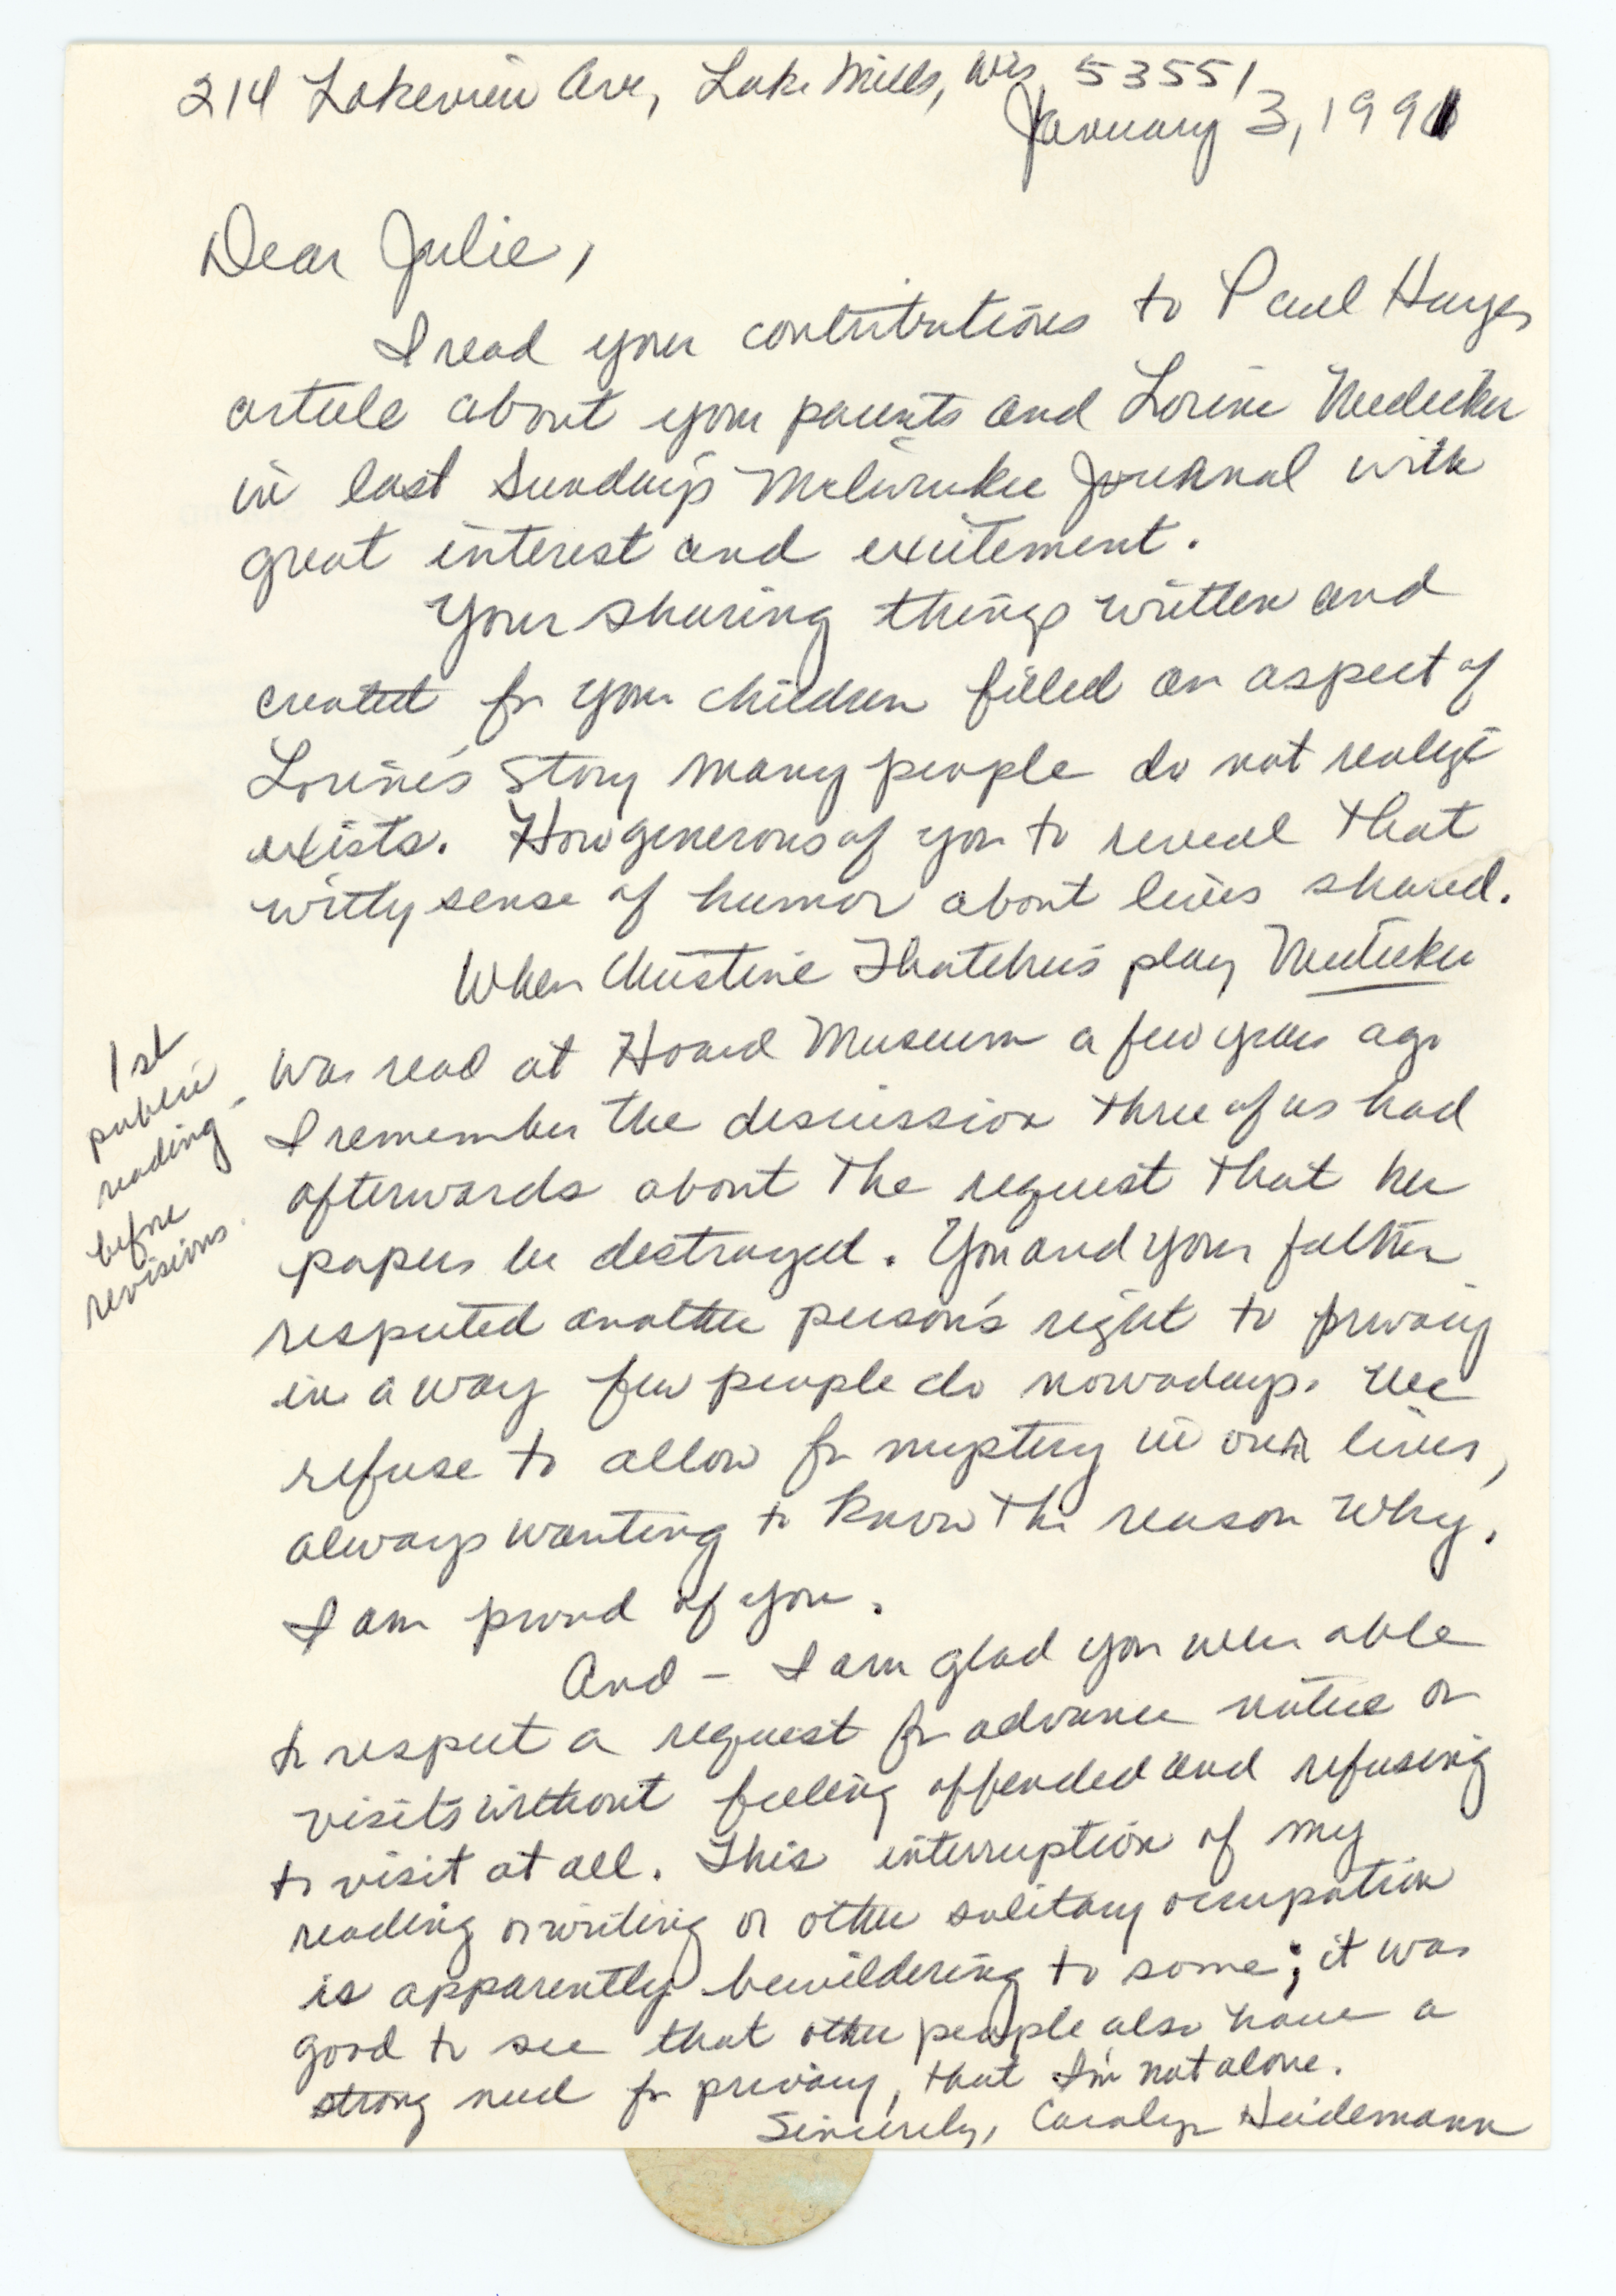 214 Lakeview Ave, Lake Mills, Wis 53551
January 3, 1991
Dear Julie,
I read your contributions to Paul Hayes
article about your parents and Lorine Niedecker
in last Sunday's Milwaukee Journal with
great interest and excitement.
Your sharing things written and
created for your children filled an aspect of
Lorine's story many people do not realize
exists. How generous of you to reveal that
witty sense of humor about lives shared.
When Christine Thatcher's play Niedecker
was read at Hoard Museum a few years ago
I remember the discussion three of us had
afterwards about the request that her
papers be destroyed. You and your father
respected another person's right to privacy
in a way few people do nowadays. We
refuse to allow for mystery in our lives,
always wanting to know the reason why.
I am proud of you.
1st
public
reading -
before
revisions.
And - I am glad you were able
to respect a request for advance notice on
visits without feeling offended and refusing
to visit at all. This interruption of my
reading or writing or other solitary occupation
is apparently bewildering to some; it was
good to see that other people also have a
strong need for privacy, that I'm not alone.
Sincerely, Carolyn Heidemann